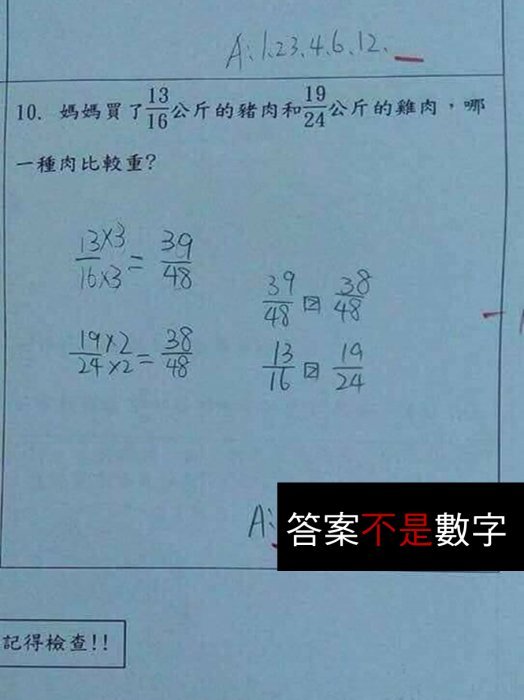 A:1.2.3.4.6.12.
10. 媽媽買了13/16公斤的豬肉和19/24公斤的雞肉，哪
一種肉比較重?
13×3/16×3=39/48
39/48 > 38/48
19×2/24×2=38/48
13/16 > 19/24
A:
答案不是數字
記得檢查!!